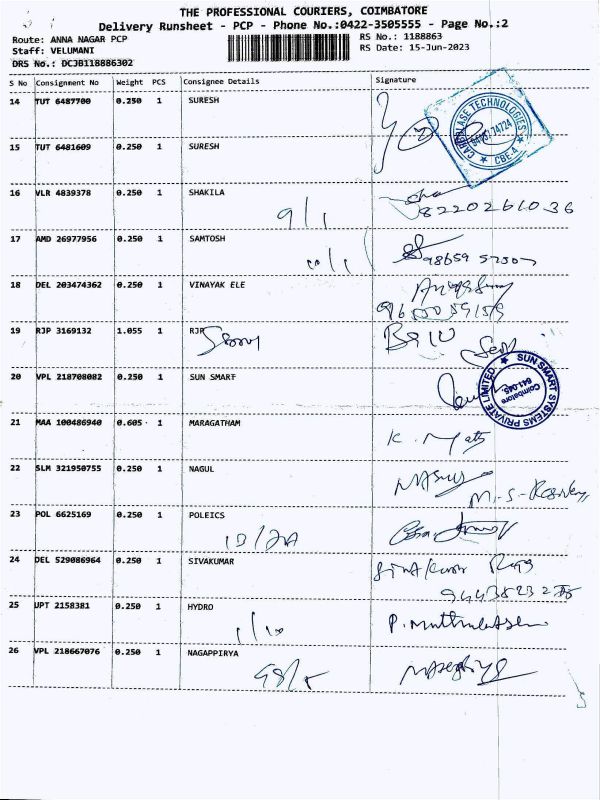 THE PROFESSIONAL COURIERS, COIMBATORE
Delivery Runsheet - PCP - Phone No.:0422-3505555 - Page No.:2
Route: ANNA NAGAR PCP RS No.: 1188863
Staff: VELUMANI RS Date: 15-Jun-2023
DRS No.: DCJB118886302
S No Consignment No Weight PCS Consignee Details Signature
14 TUT 6487700 0.250 1 SURESH
CAMBLASE TECHNOLOGIES
CBE-4
15 TUT 6481609 0.250 1 SURESH
16 VLR 4839378 0.250 1 SHAKILA
9/1 8220261036
17 AMD 26977956 0.250 1 SAMTOSH
18 DEL 203474362 0.250 1 VINAYAK ELE
19 RJP 3169132 1.055 1 RJP
20 VPL 218708082 0.250 1 SUN SMART
SUN SMART SYSTEMS PRIVATE LIMITED
Coimbatore
641 045
21 MAA 100486940 0.605 1 MARAGATHAM
22 SLM 321950755 0.250 1 NAGUL
23 POL 6625169 0.250 1 POLEICS
24 DEL 529086964 0.250 1 SIVAKUMAR
25 UPT 2158381 0.250 1 HYDRO
1/10
26 VPL 218667076 0.250 1 NAGAPPIRYA